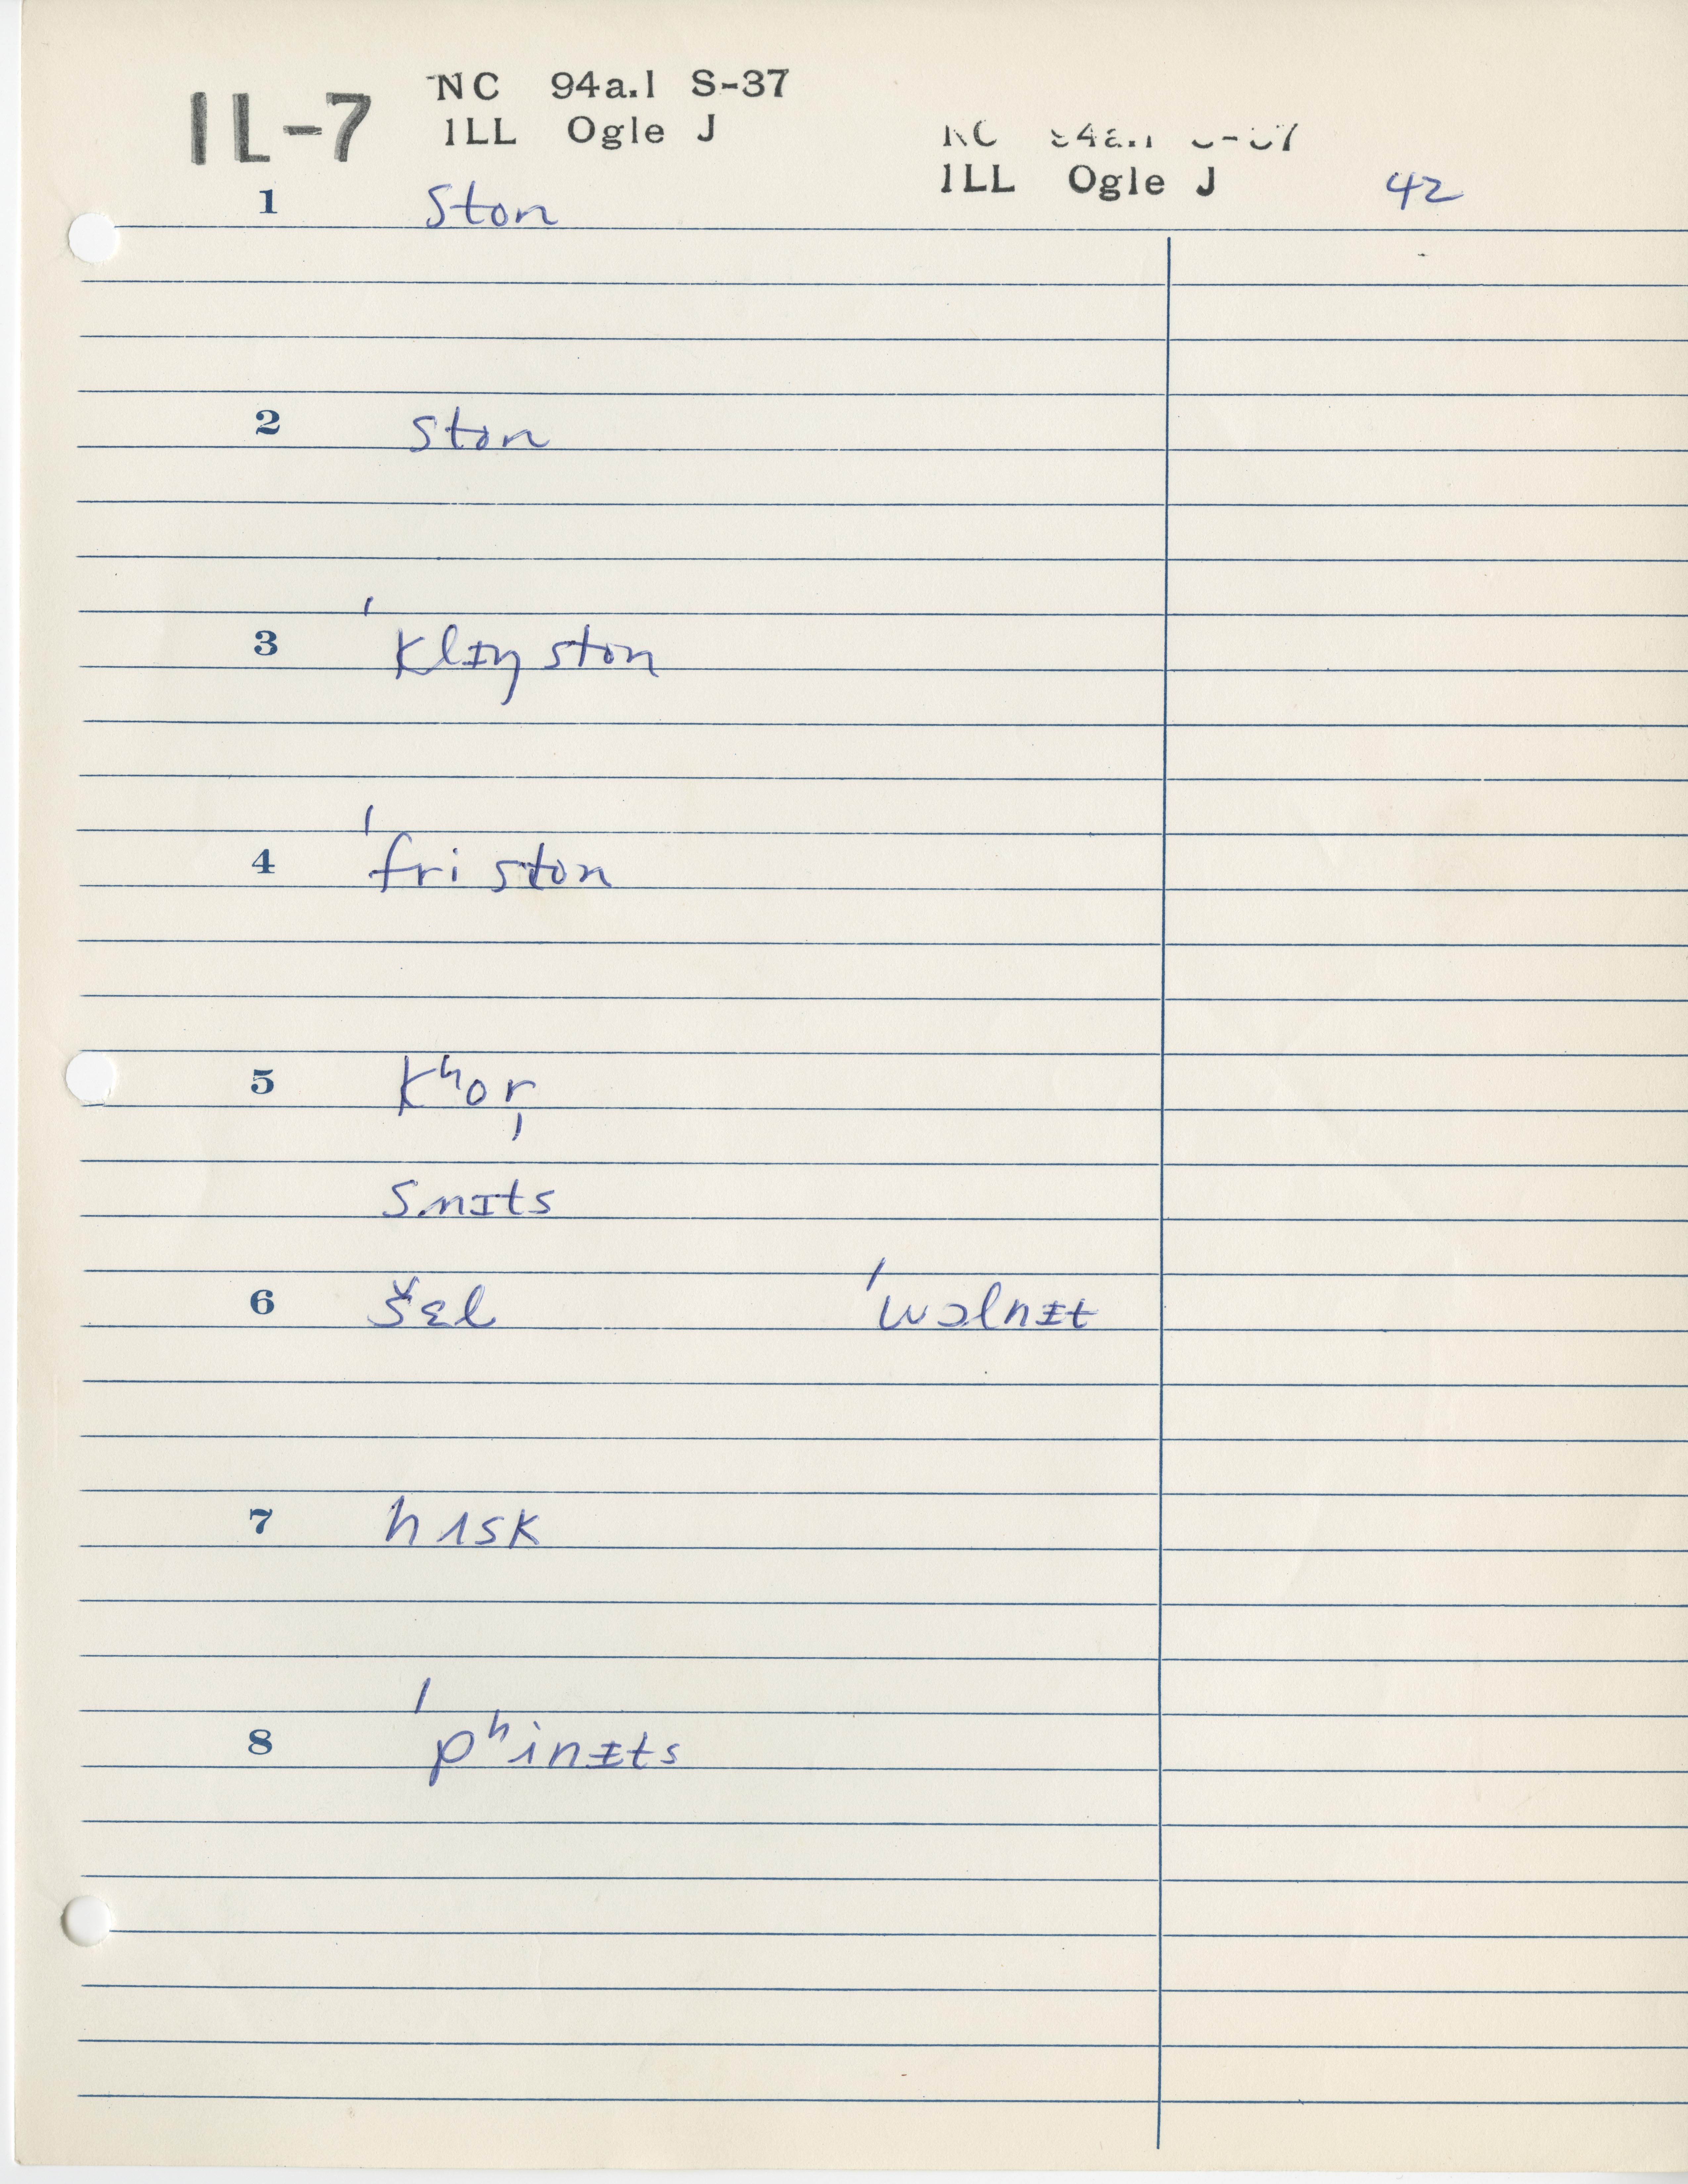 IL-7 NC 94a.1 S-37
ILL Ogle J
NC 94a.1 S-37
ILL Ogle J 42
1 ston
2 ston
3 ˈklɪŋ ston
4 ˈfri ston
5 kʰor,
snɪts
6 šɛl ˈwɔlnɨt
7 hʌsk
8 ˈpʰinɨts